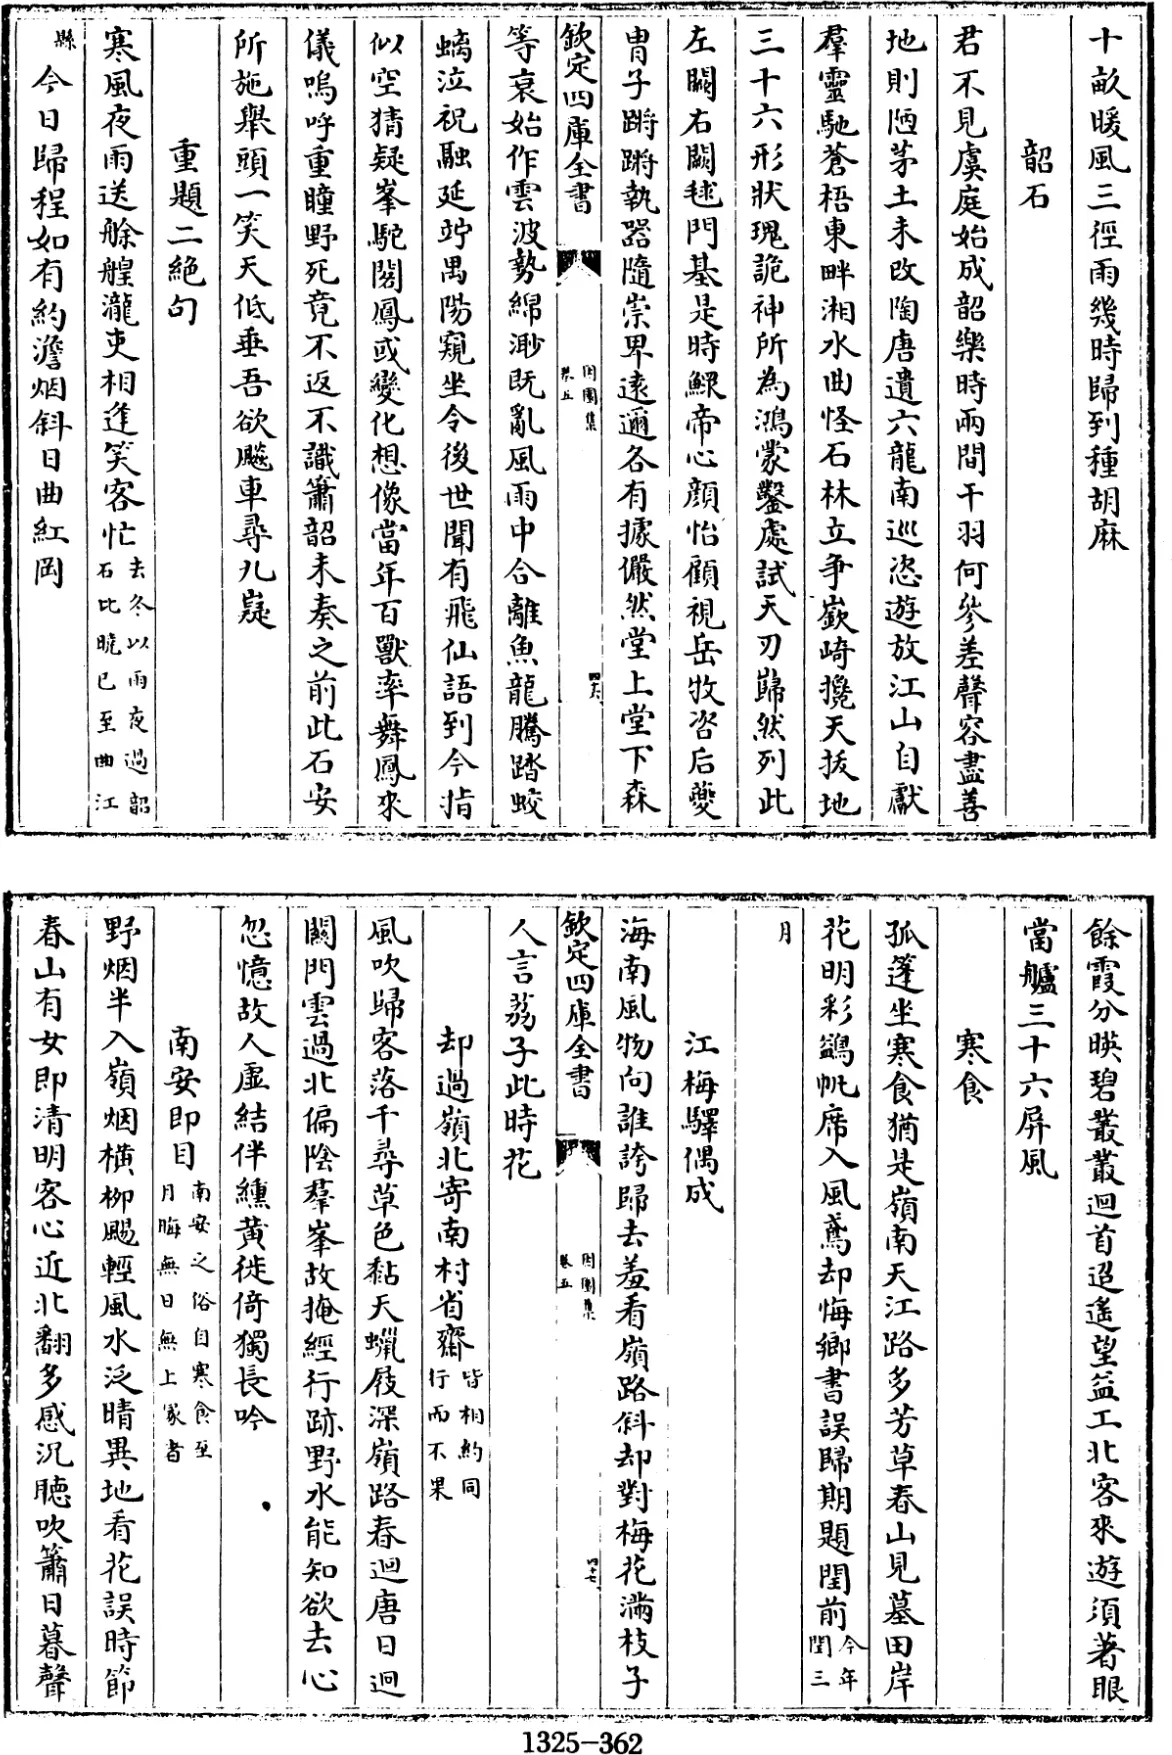 十畝暖風三徑雨幾時歸到種胡麻
韶石
君不見虞庭始成韶樂時兩間干羽何參差聲容盡善
地則陋茅土未改陶唐遺六龍南巡恣遊放江山自獻
羣靈馳蒼梧東畔湘水曲怪石林立争嶔崎攙天拔地
三十六形狀瑰詭神所為鴻蒙鑿處試天刃巋然列此
左闕右闕毬門基是時鰥帝心顔怡顧視岳牧咨后夔
胄子蹡蹡執器隨崇卑遠邇各有據儼然堂上堂下森
欽定四庫全書
因園集
卷五
四六
等衰始作雲波勢綿渺既亂風雨中合離魚龍騰踏蛟
螭泣祝融延竚禺陽窺坐令後世聞有飛仙語到今指
似空猜疑峯駝閣鳳或變化想像當年百獸率舞鳳來
儀嗚呼重瞳野死竟不返不識簫韶未奏之前此石安
所施舉頭一笑天低垂吾欲飈車尋九嶷
重題二絶句
寒風夜雨送艅艎瀧吏相逢笑客忙去冬以雨夜過韶
石比曉已至曲江
縣今日歸程如有約澹烟斜日曲紅岡
餘霞分暎碧叢叢迴首迢遙望益工北客來遊須著眼
當艫三十六屏風
寒食
孤篷坐寒食猶是嶺南天江路多芳草春山見墓田岸
花明彩鷁帆席入風鳶却悔鄉書誤歸期題閏前今年
閏三
月
江梅驛偶成
海南風物向誰誇歸去羞看嶺路斜却對梅花滿枝子
欽定四庫全書
因園集
卷五
四十七
人言荔子此時花
却過嶺北寄南村省齋皆相約同
行而不果
風吹歸客落千尋草色黏天蠟屐深嶺路春迴唐日迥
關門雲過北偏陰羣峯故掩經行跡野水能知欲去心
忽憶故人虛結伴纁黄徙倚獨長吟
南安即目南安之俗自寒食至
月晦無日無上冢者
野烟半入嶺烟横柳颺輕風水泛晴異地看花誤時節
春山有女即清明客心近北翻多感沉聽吹簫日暮聲
1325-362